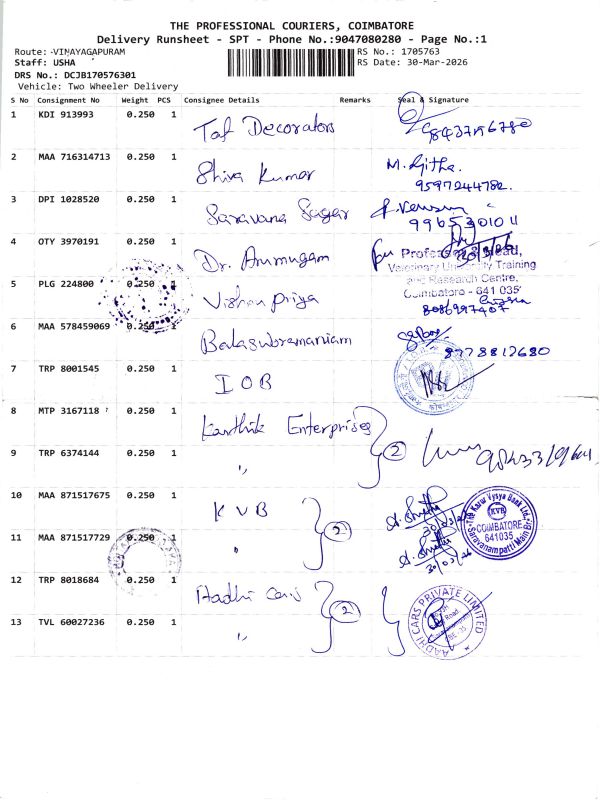 THE PROFESSIONAL COURIERS, COIMBATORE
Delivery Runsheet - SPT - Phone No.:9047080280 - Page No.:1
Route: -VINAYAGAPURAM
Staff: USHA
DRS No.: DCJB170576301
Vehicle: Two Wheeler Delivery
RS No.: 1705763
RS Date: 30-Mar-2026
S No Consignment No Weight PCS Consignee Details Remarks Seal & Signature
1 KDI 913993 0.250 1 Taf Decorators
2 MAA 716314713 0.250 1 Shiva Kumar M. Ajitha.
9597244782.
3 DPI 1028520 0.250 1 Saravana Sagar
9965301011
4 OTY 3970191 0.250 1 Dr. Arumugam
Professor & Head,
Veterinary University Training
and Research Centre,
Coimbatore - 641 035
5 PLG 224800 0.250 1 Vishnu Priya
8086997407
6 MAA 578459069 0.250 1 Balasubramaniam
8778812680
7 TRP 8001545 0.250 1 IOB
8 MTP 3167118 0.250 1 Karthik Enterprises
2
9 TRP 6374144 0.250 1 "
10 MAA 871517675 0.250 1 KVB
2
30/03/26
The Karur Vysya Bank Ltd.
KVB
COIMBATORE
641035
Saravanampatti Main Br.
11 MAA 871517729 0.250 1 "
30/03/26
12 TRP 8018684 0.250 1 Aadhi Cars
2
AADHI CARS PRIVATE LIMITED
13 TVL 60027236 0.250 1 "